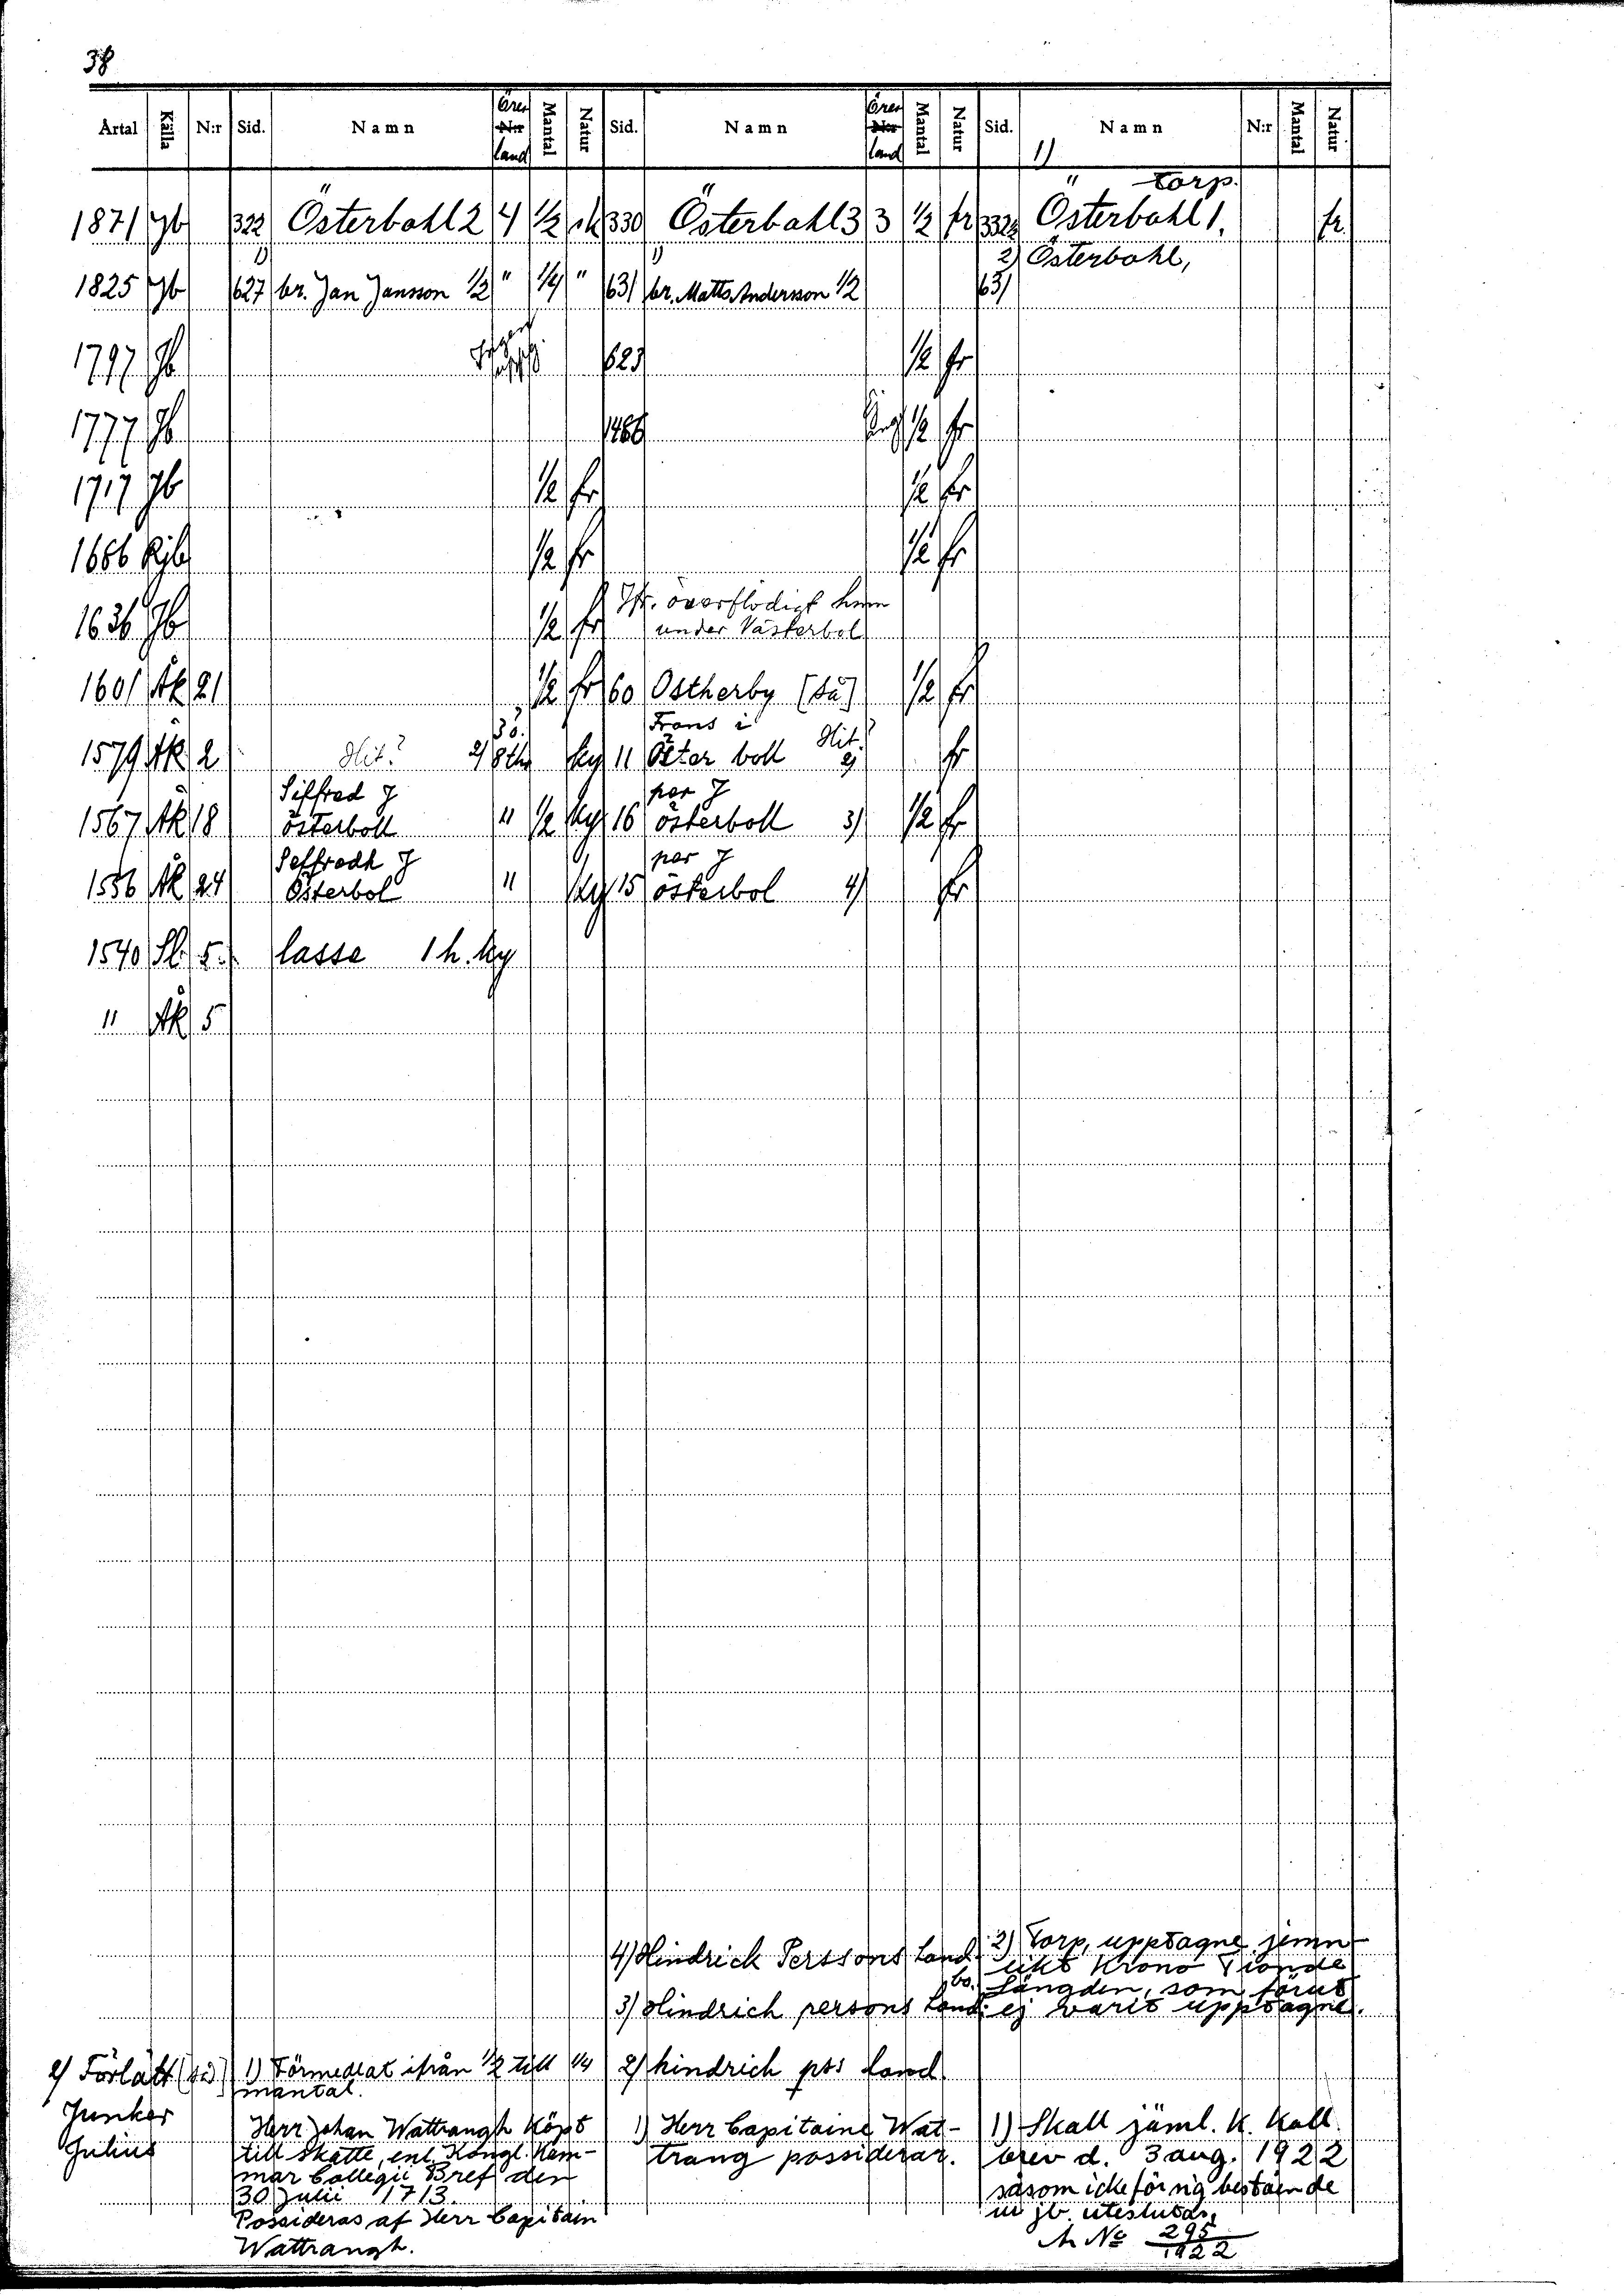 38
Årtal Källa N:r Sid. Namn Öres land Mantal Natur Sid. Namn Öres land Mantal Natur Sid. Namn N:r Mantal Natur
1)
" torp.
1871 Jb 322 Österbohl 2 4 1/2 sk 330 Österbohl 3 3 1/2 fr 332 Österbohl 1. fr.
1) 1) 2) Österbohl,
1825 Jb 627 br. Jan Jansson 1/2 " 1/4 " 631 br. Matts Andersson 1/2 631
1797 Jb 623 1/2 fr
1777 Jb 1466 1/2 fr
1717 Jb 1/2 fr 1/2 fr
1686 1/2 fr 1/2 fr
Jfr. överflödigt hem
1636 Jb 1/2 fr under Västerbol
1601 Åk 21 1/2 fr 60 Ostherby (så) 1/2 fr
Frans i
1579 Åk 2 Hit? 2) ky 11 Öster boll Hit? 2) fr
Siffred J per J
1567 Åk 18 österboll " 1/2 ky 16 österboll 3) 1/2 fr
Seffredh J per J
1556 Åk 24 Österbol " ky 15 österbol 4) fr
1540 Sl. 5. lasse 1 h. ky
" Åk 5
4) Hindrick Perssons land
bo.
3) Hindrich persons land
2) hindrich prs land
1) Herr Capitaine Wat-
trang possiderar.
2) Torp, upptagne jemn-
likt Krono Tionde
Längden, som förut
ej varit upptagne.
1) Skall jäml. K. Kall.
brev d. 3 aug. 1922
såsom icke för sig bestående
ur jb. uteslutas,
A No 295
1922
2) Förlätt (så)
Junker
Julius
1) Förmedlat ifrån 1/2 till 1/4
mantal.
Herr Johan Wattrangh Köpt
till Skatte, enl. Kongl. Kam-
mar Collegii Bref den
30 Julii 1713.
Possideras af Herr Capitain
Wattrangh.